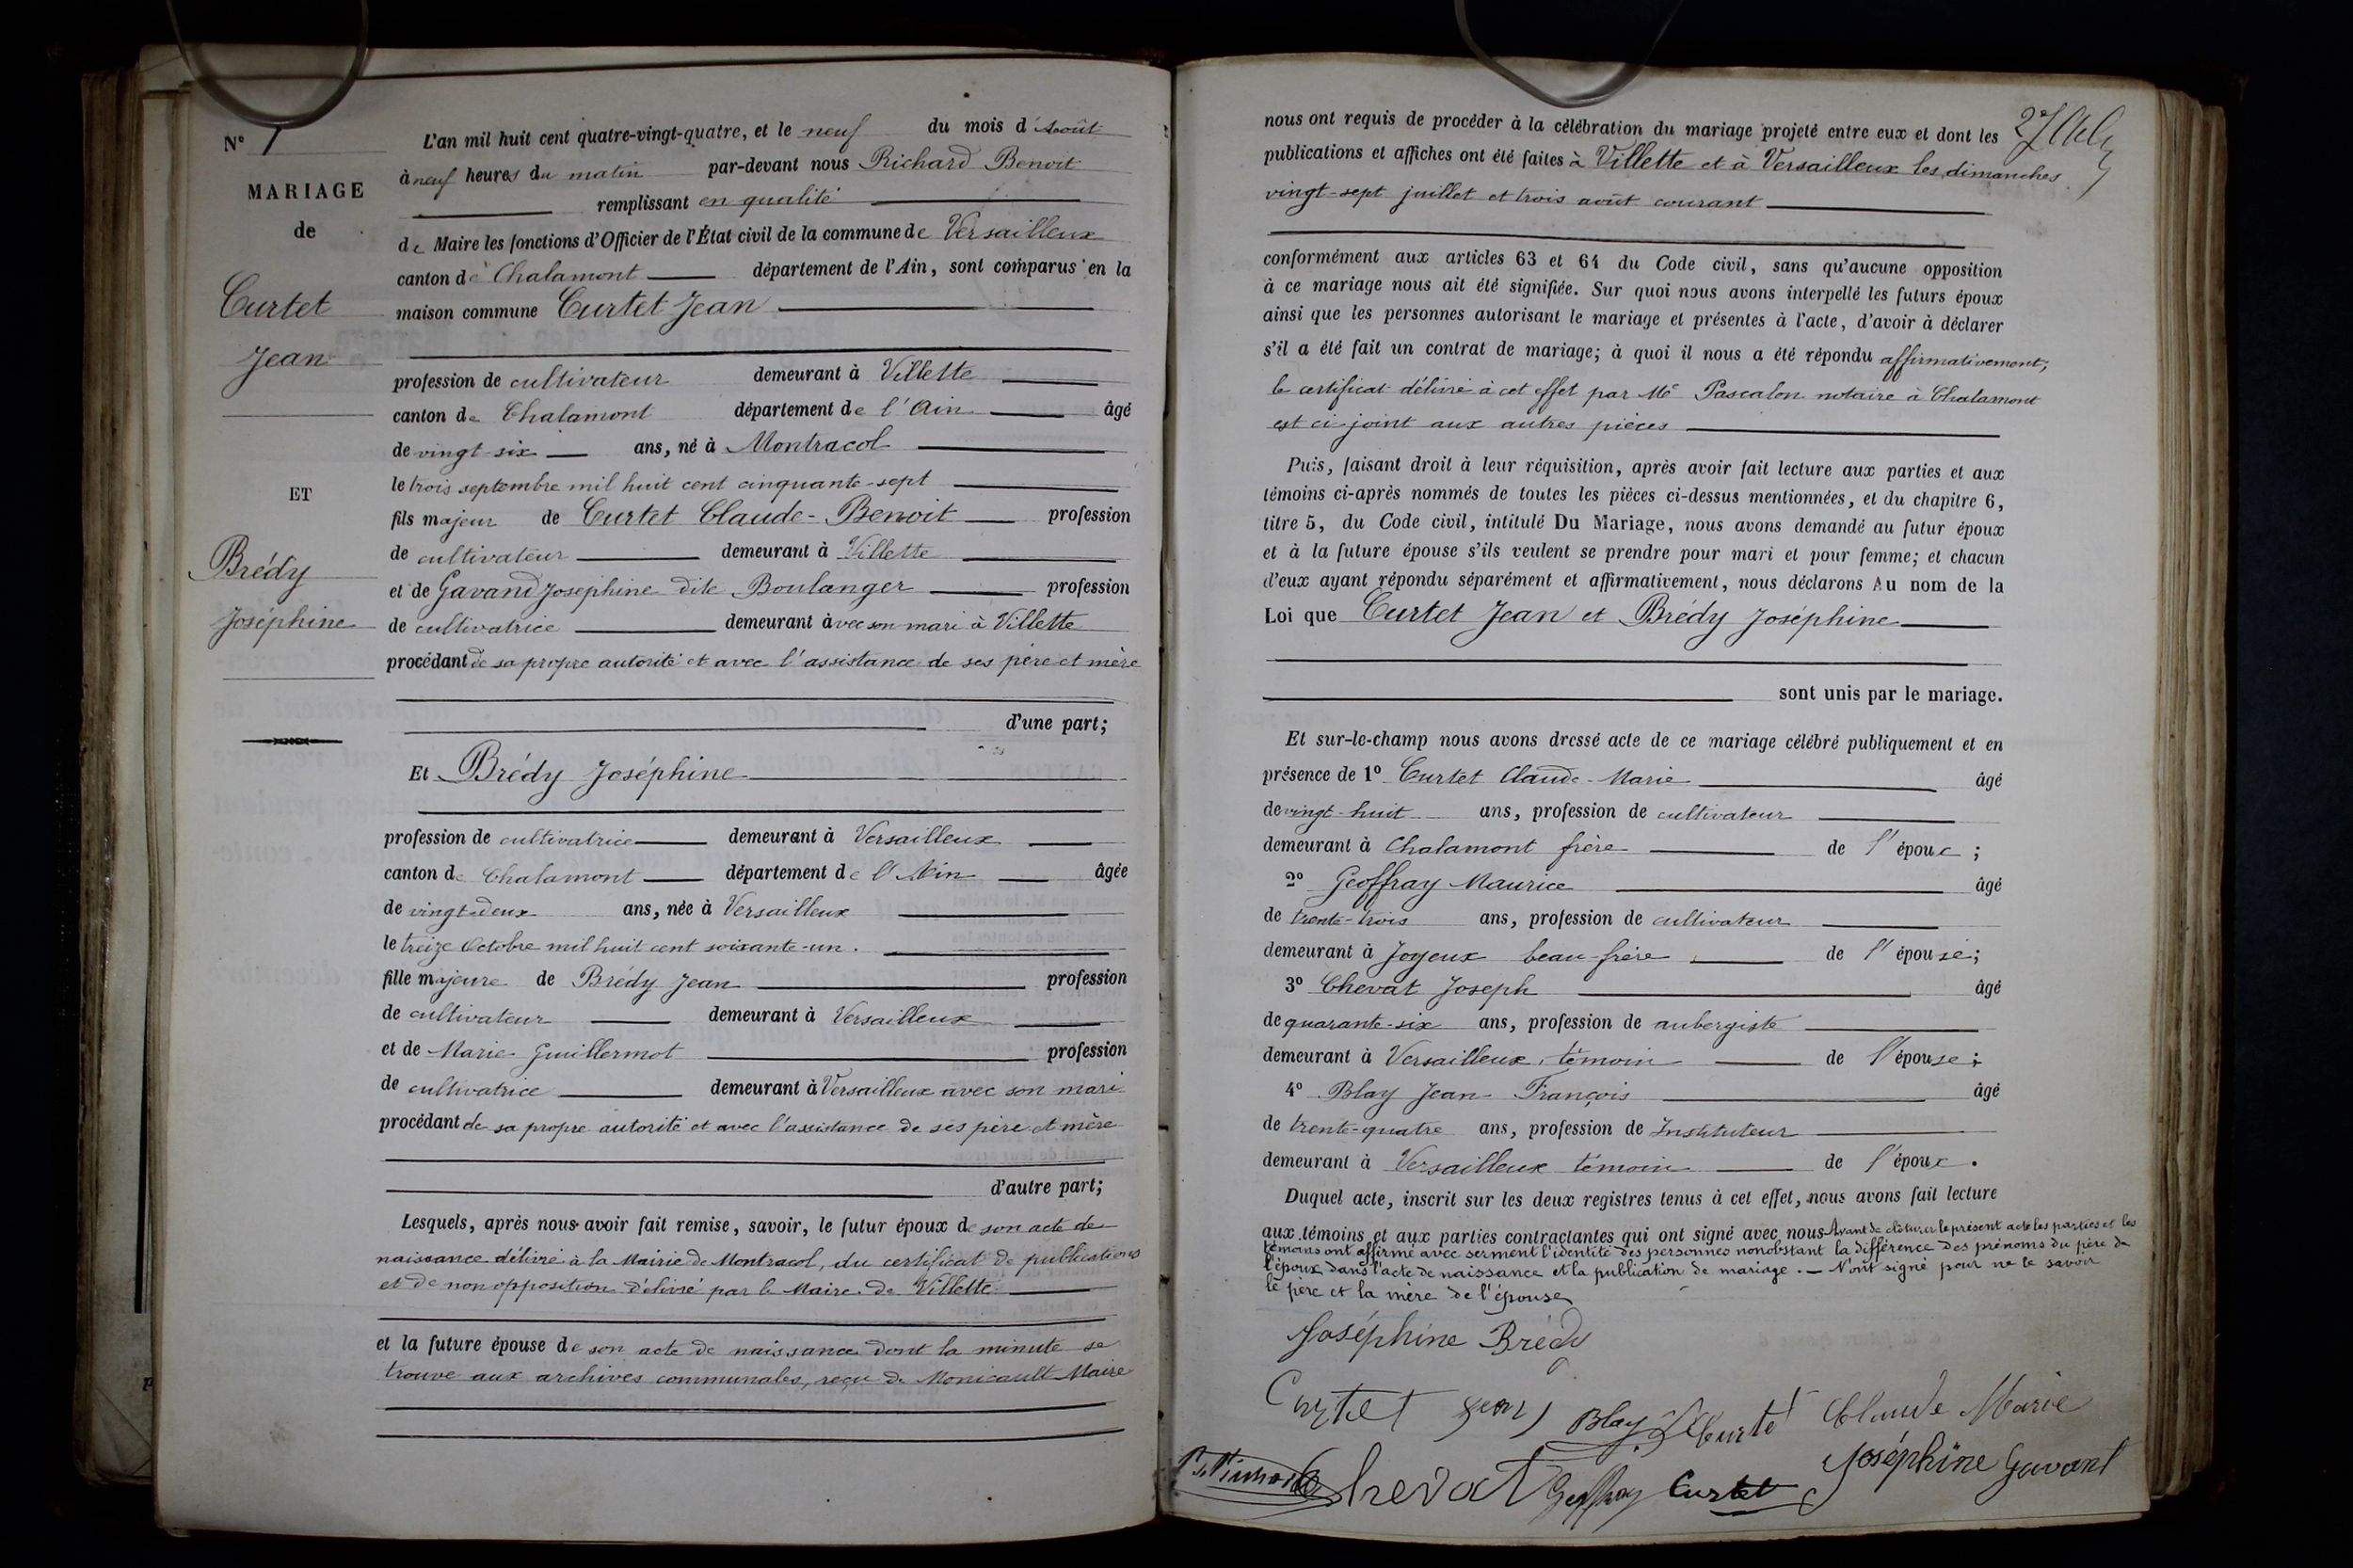 N° 7
MARIAGE
de
Curtet
Jean
ET
Brédy
Joséphine
L'an mil huit cent quatre-vingt-quatre, et le neuf du mois d'Août
à neuf heures du matin par-devant nous Richard Benoit
remplissant en qualité
de Maire les fonctions d'Officier de l'État civil de la commune de Versailleux
canton de Chalamont département de l'Ain, sont comparus en la
maison commune Curtet Jean
profession de cultivateur demeurant à Villette
canton de Chalamont département de l'Ain âgé
de vingt-six ans, né à Montracol
le trois septembre mil huit cent cinquante-sept
fils majeur de Curtet Claude-Benoit profession
de cultivateur demeurant à Villette
et de Gavand Josephine dite Boulanger profession
de cultivatrice demeurant avec son mari à Villette
procédant de sa propre autorité et avec l'assistance de ses père et mère
d'une part;
Et Brédy Joséphine
profession de cultivatrice demeurant à Versailleux
canton de Chalamont département de l'Ain âgée
de vingt-deux ans, née à Versailleux
le treize Octobre mil huit cent soixante-un.
fille majeure de Brédy Jean profession
de cultivateur demeurant à Versailleux
et de Marie Guillermot profession
de cultivatrice demeurant à Versailleux avec son mari
procédant de sa propre autorité et avec l'assistance de ses père et mère
d'autre part;
Lesquels, après nous avoir fait remise, savoir, le futur époux de son acte de
naissance délivré à la Mairie de Montracol, du certificat de publications
et de non opposition délivré par le Maire de Villette
et la future épouse de son acte de naissance dont la minute se
trouve aux archives communales, reçu de Monicault Maire
nous ont requis de procéder à la célébration du mariage projeté entre eux et dont les
publications et affiches ont été faites à Villette et à Versailleux les dimanches
vingt-sept juillet et trois août courant
conformément aux articles 63 et 64 du Code civil, sans qu'aucune opposition
à ce mariage nous ait été signifiée. Sur quoi nous avons interpellé les futurs époux
ainsi que les personnes autorisant le mariage et présentes à l'acte, d'avoir à déclarer
s'il a été fait un contrat de mariage; à quoi il nous a été répondu affirmativement;
le certificat délivré à cet effet par Me Pascalon notaire à Chalamont
est ci-joint aux autres pièces
Puis, faisant droit à leur réquisition, après avoir fait lecture aux parties et aux
témoins ci-après nommés de toutes les pièces ci-dessus mentionnées, et du chapitre 6,
titre 5, du Code civil, intitulé Du Mariage, nous avons demandé au futur époux
et à la future épouse s'ils veulent se prendre pour mari et pour femme; et chacun
d'eux ayant répondu séparément et affirmativement, nous déclarons Au nom de la
Loi que Curtet Jean et Brédy Joséphine
sont unis par le mariage.
Et sur-le-champ nous avons dressé acte de ce mariage célébré publiquement et en
présence de 1° Curtet Claude-Marie âgé
de vingt-huit ans, profession de cultivateur
demeurant à Chalamont frère de l'époux;
2° Geoffray Maurice âgé
de trente-trois ans, profession de cultivateur
demeurant à Joyeux beau-frère de l'épouse;
3° Chevat Joseph âgé
de quarante-six ans, profession de aubergiste
demeurant à Versailleux témoin de l'épouse;
4° Blay Jean-François âgé
de trente-quatre ans, profession de Instituteur
demeurant à Versailleux témoin de l'époux.
Duquel acte, inscrit sur les deux registres tenus à cet effet, nous avons fait lecture
aux témoins et aux parties contractantes qui ont signé avec nous. Avant de clôturer le présent acte les parties et les
témoins ont affirmé avec serment l'identité des personnes nonobstant la différence des prénoms du père de
l'époux dans l'acte de naissance et la publication de mariage. — N'ont signé pour ne le savoir
le père et la mère de l'épouse
Joséphine Brédy
Curtet Jean Blay Curtet Claude Marie
Chevat Geoffray Curtet Joséphine Gavant